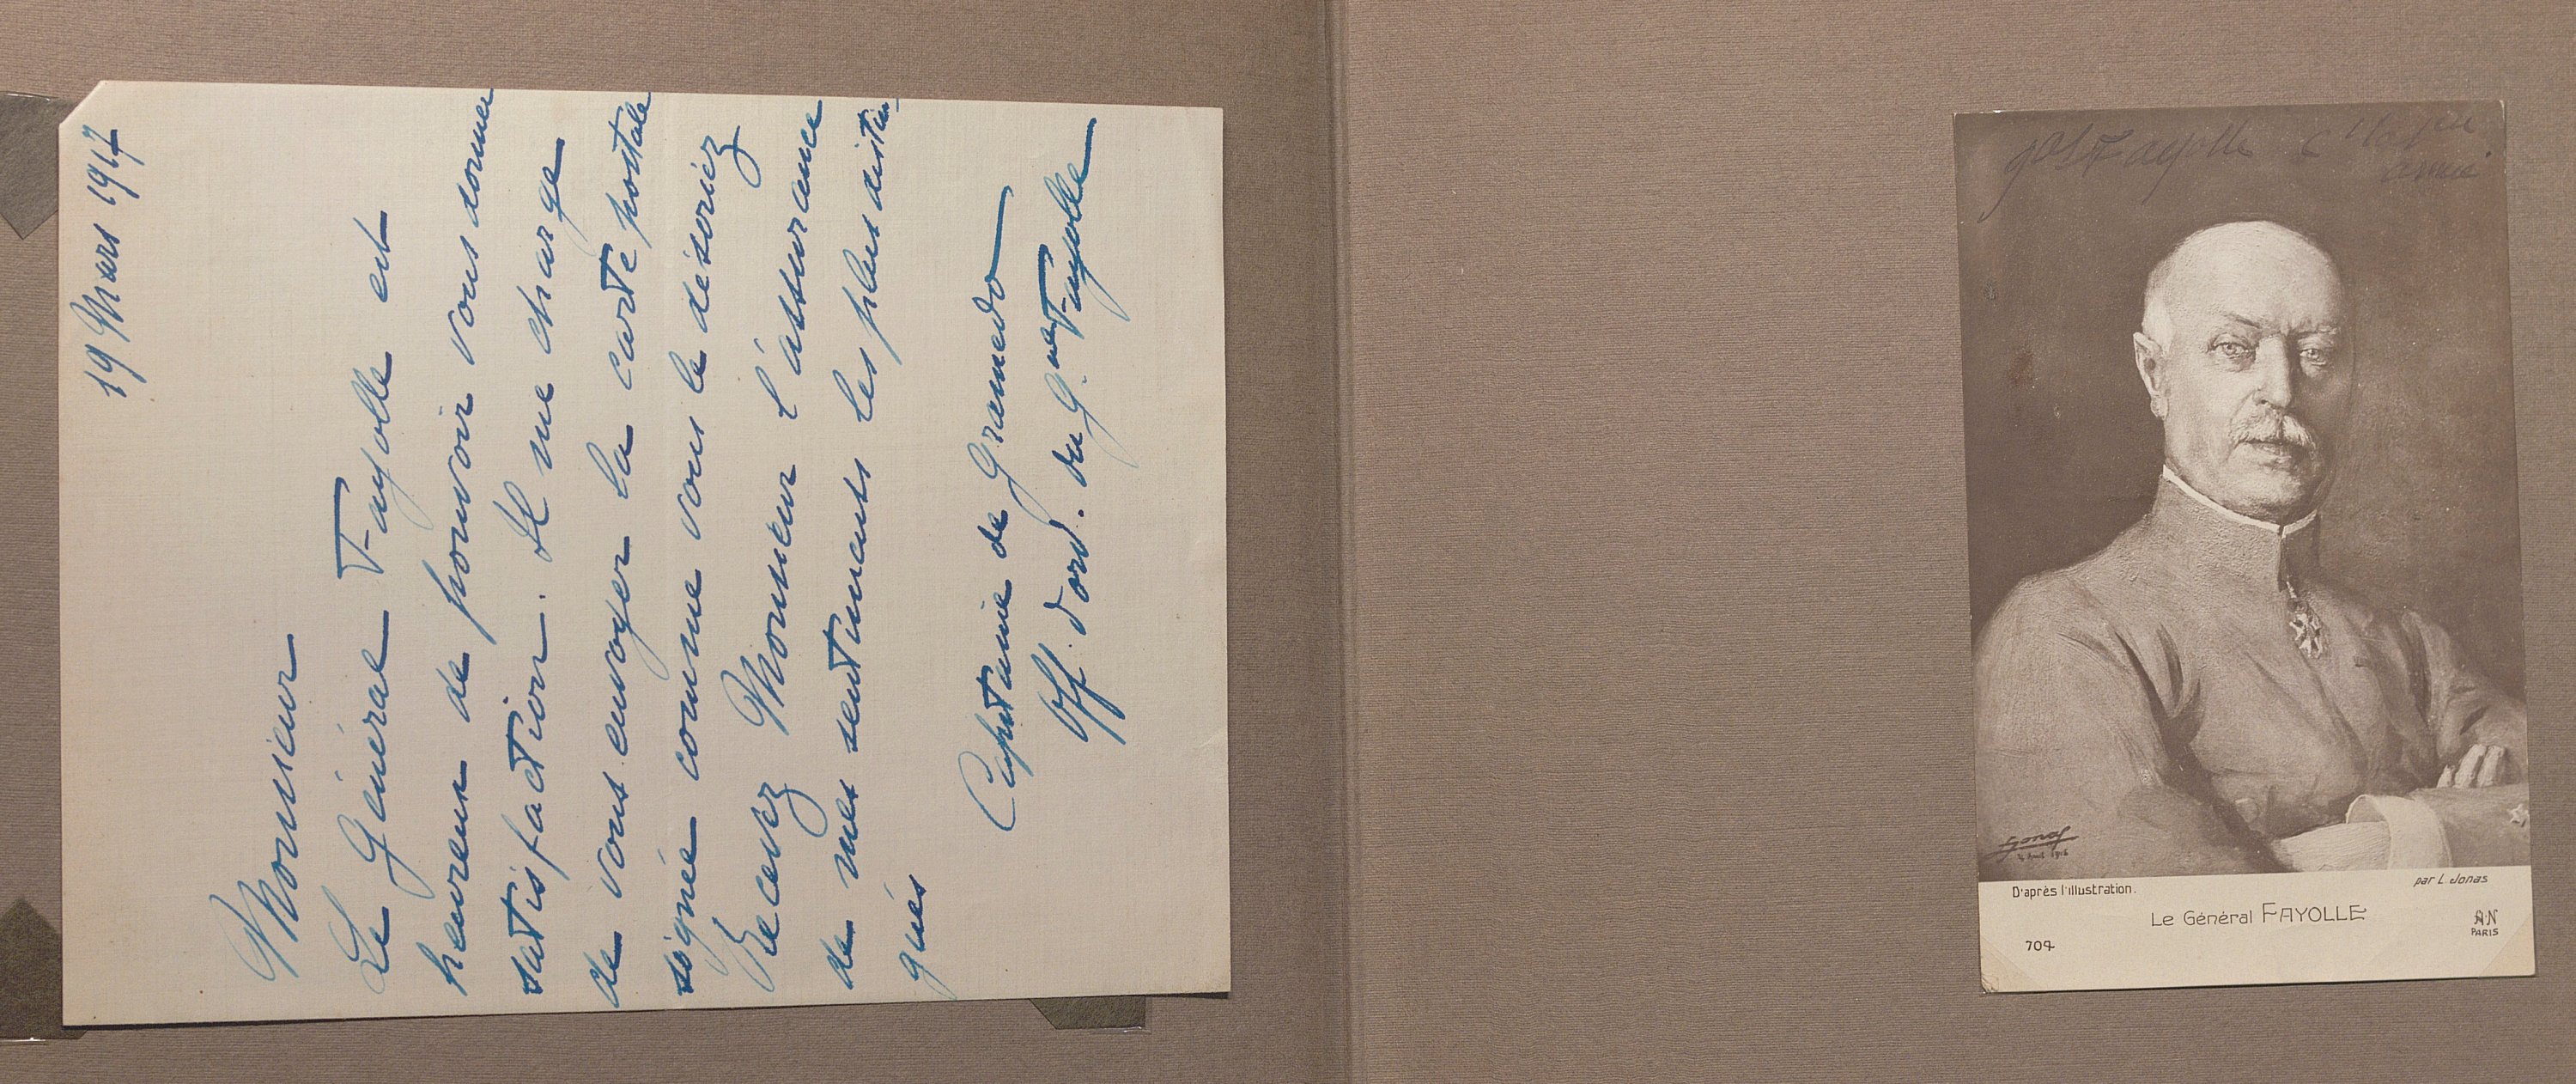 19 Mars 1917
Monsieur
Le Général Fayolle est
heureux de pouvoir vous donner
satisfaction. Il me charge
de vous envoyer la carte postale
signée comme vous le désiriez
Recevez Monsieur l'assurance
de mes sentiments les plus distin
gués
Capitaine de Gramedo
Off. d'ord. du G.ral Fayolle
Gal Fayolle
armée
D'après l'illustration.
par L. Jonas
Le Général FAYOLLE
704
A.N
PARIS